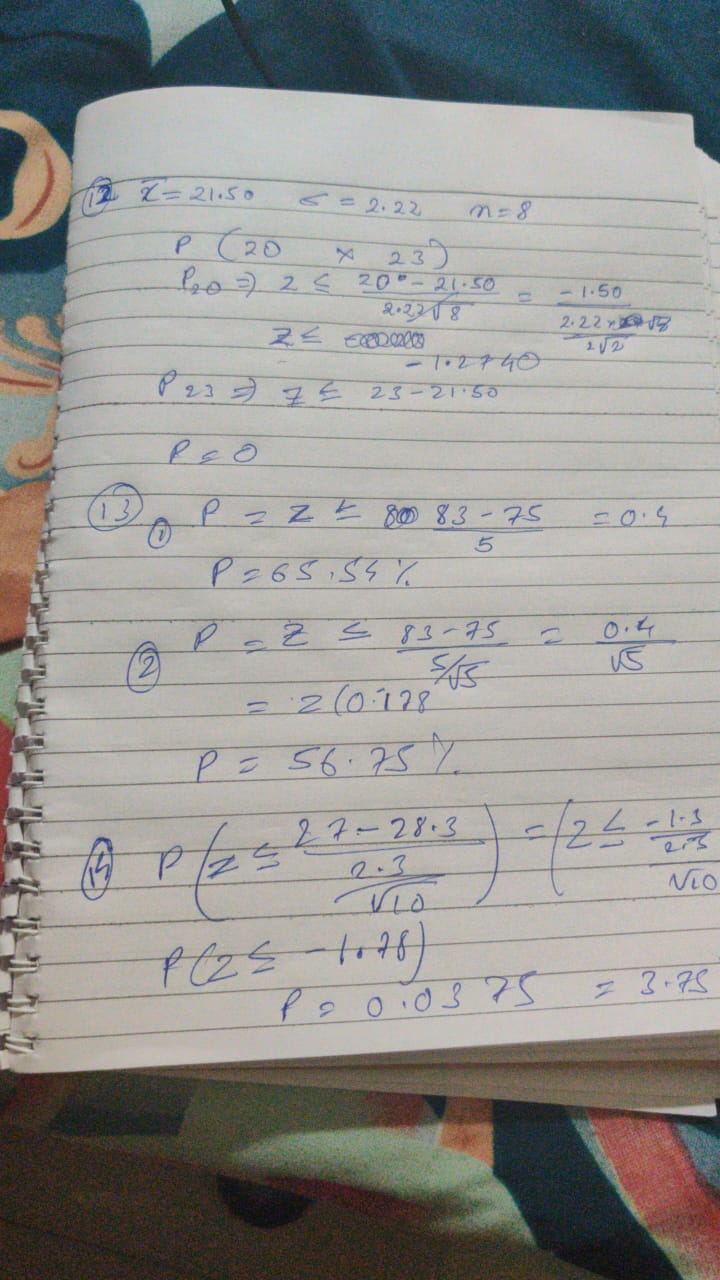 12 x̄ = 21.50 σ = 2.22 n=8
P (20 x 23)
P20 ⇒ z ≤ (20 - 21.50)/(2.22/√8) = -1.50/(2.22×√8/2√2)
z ≤ -1.2740
P23 ⇒ z ≤ 23-21.50
P = 0
13 1 P = z ≤ (83-75)/5 = 0.4
P = 65.54%
2 P = z ≤ (83-75)/(5/√5) = 0.4/√5
= z(0.178
P = 56.75%
14 P(z ≤ (27-28.3)/(2.3/√10)) = (z ≤ -1.3/(2.3/√10)
P(z ≤ -1.78)
P = 0.0375 = 3.75